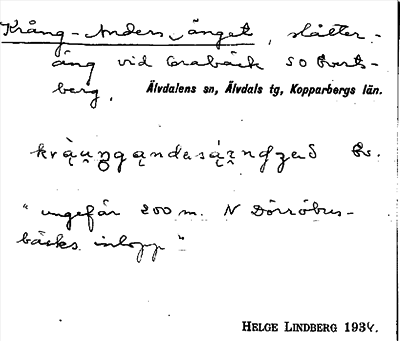 Krång-Anders änget, slåtter-
äng vid Corabäck SO Everts-
berg. Älvdalens sn, Älvdals tg, Kopparbergs län.
"ungefär 200 m. N Dörröbus-
bäcks inlopp"
HELGE LINDBERG 1934.